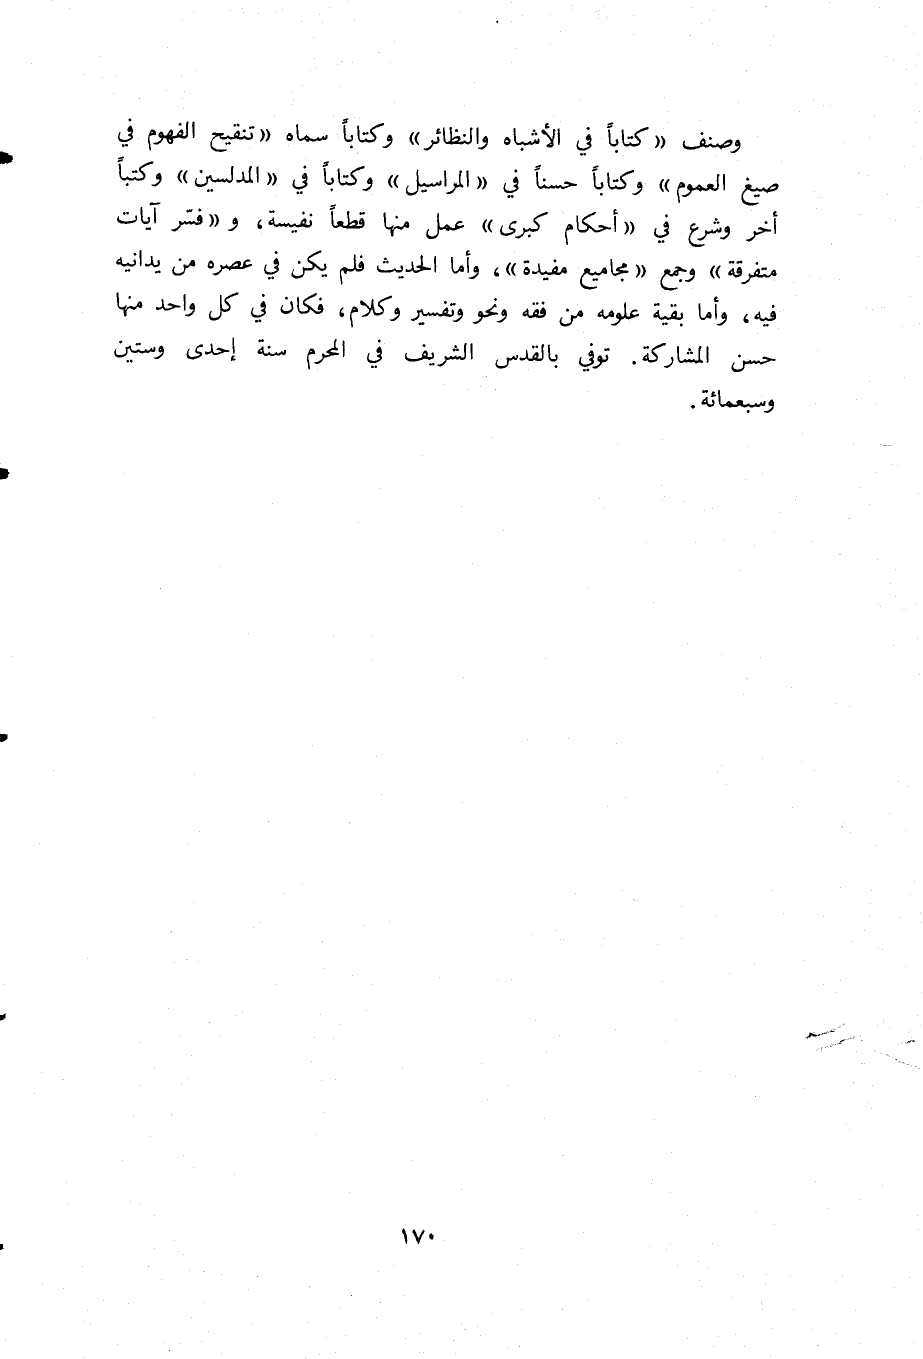 وصنف «كتاباً في الأشباه والنظائر» وكتاباً سماه «تنقيح الفهوم في
صيغ العموم» وكتاباً حسناً في «المراسيل» وكتاباً في «المدلسين» وكتباً
أخر وشرع في «أحكام كبرى» عمل منها قطعاً نفيسة، و «فسّر آيات
متفرقة» وجمع «مجاميع مفيدة»، وأما الحديث فلم يكن في عصره من يدانيه
فيه، وأما بقية علومه من فقه ونحو وتفسير وكلام، فكان في كل واحد منها
حسن المشاركة. توفي بالقدس الشريف في المحرم سنة إحدى وستين
وسبعمائة.
١٧٠